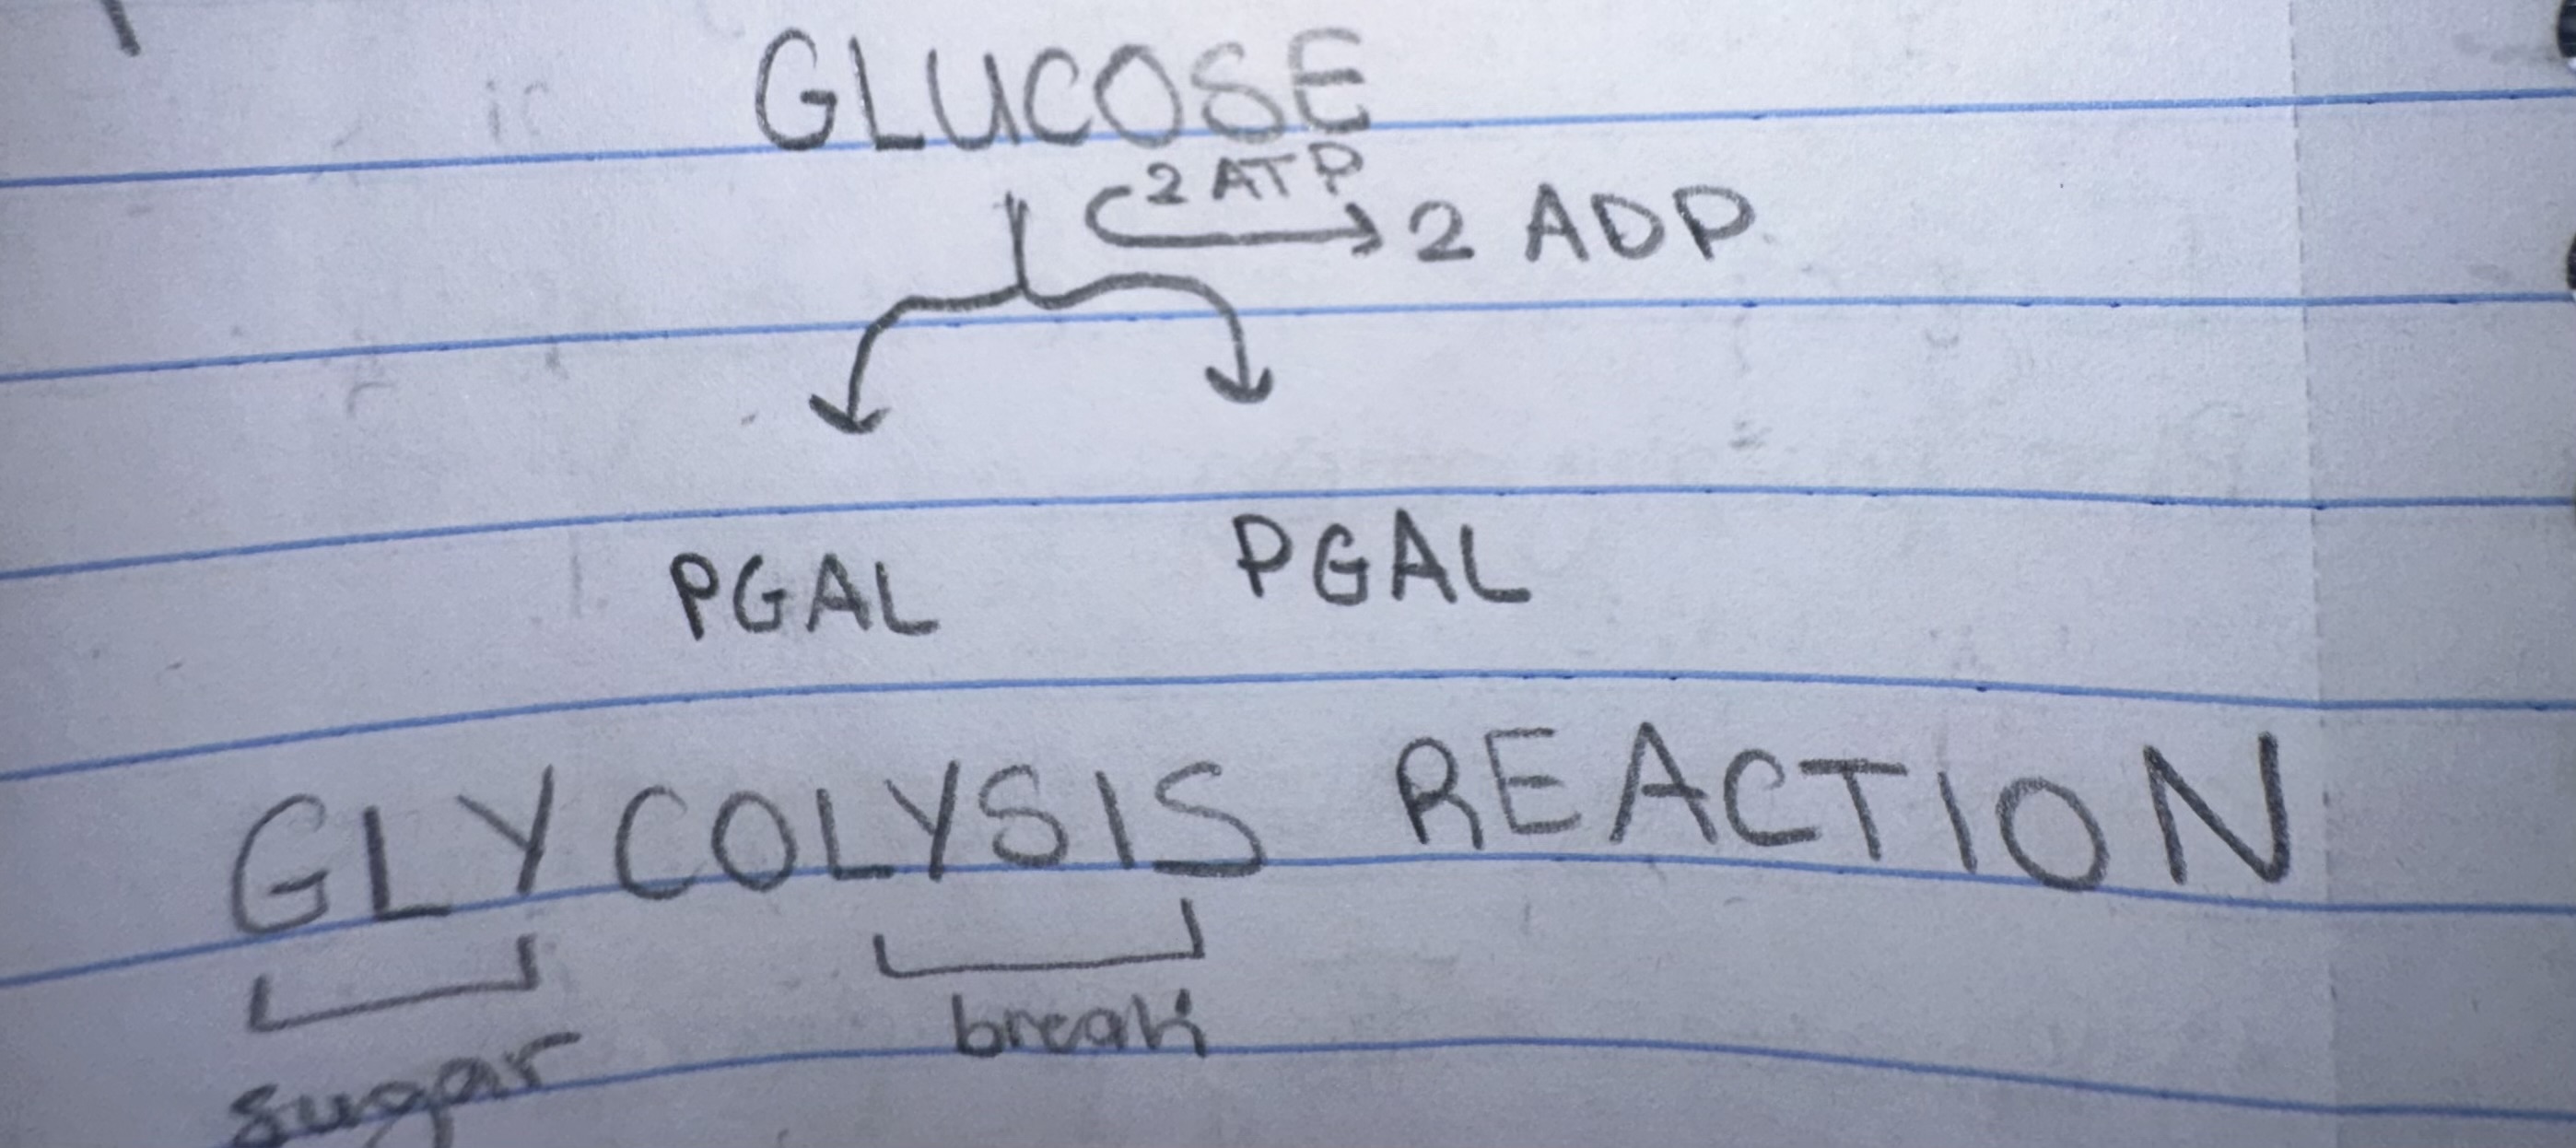 GLUCOSE
2 ATP
2 ADP
PGAL PGAL
GLYCOLYSIS REACTION
sugar break